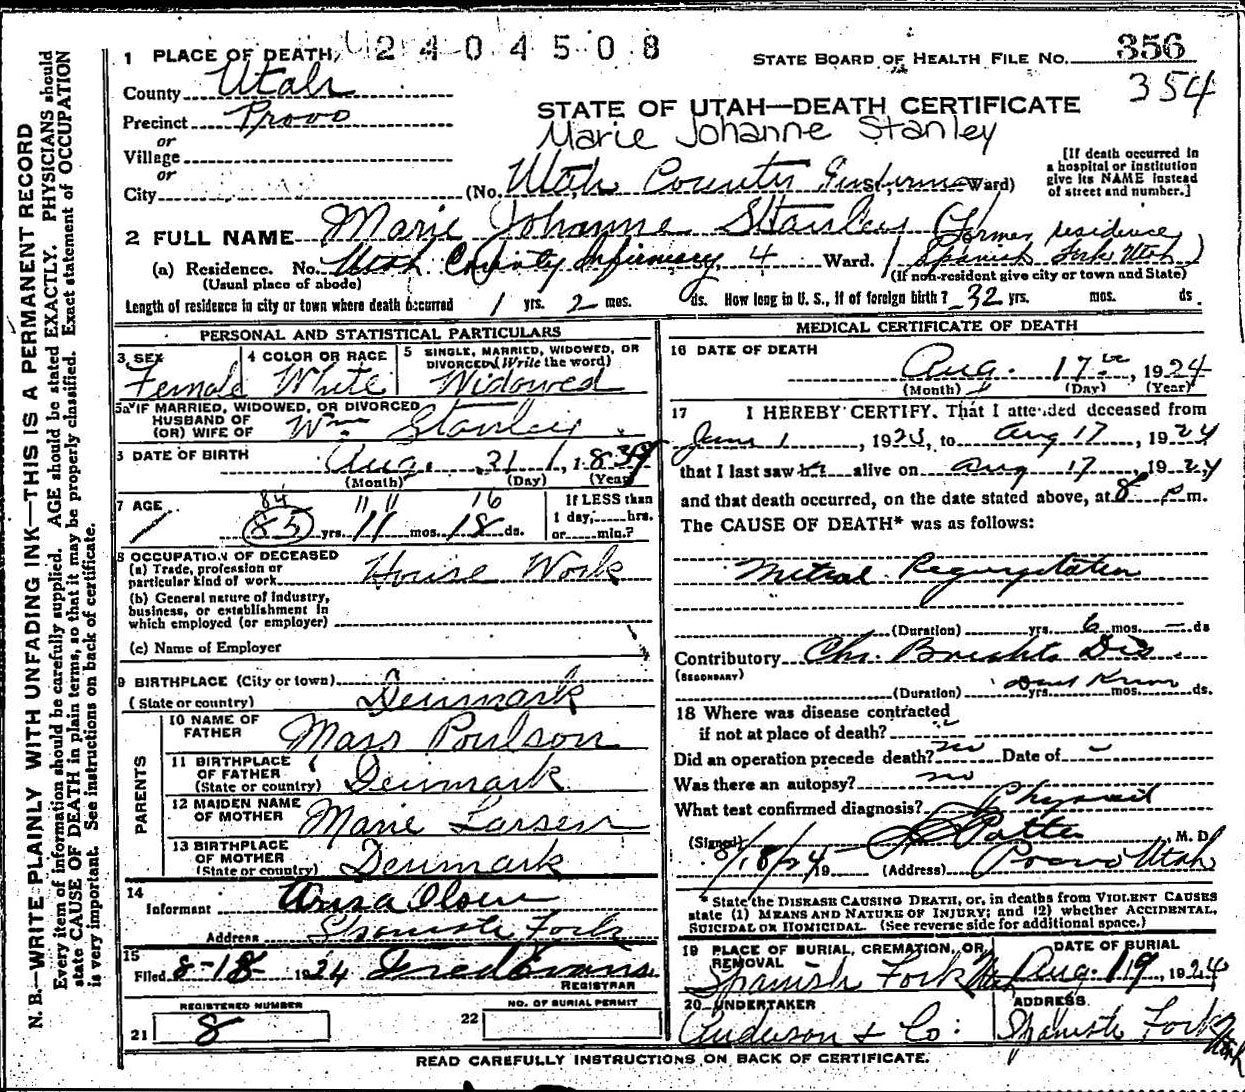 2404508
1 PLACE OF DEATH
STATE BOARD OF HEALTH FILE NO. 356
354
County Utah
STATE OF UTAH—DEATH CERTIFICATE
Precinct Provo
Marie Johanne Stanley
or
Village
or
City (No. Utah County Ward)
[If death occurred in a hospital or institution give its NAME instead of street and number.]
2 FULL NAME Marie Johanne Stanley (Former residence
(a) Residence. No. Utah County Infirmary, 4 Ward. Spanish Fork Utah)
(Usual place of abode) (If non-resident give city or town and State)
Length of residence in city or town where death occurred 1 yrs. 2 mos. ds. How long in U. S., if of foreign birth? 32 yrs. mos. ds.
PERSONAL AND STATISTICAL PARTICULARS
3 SEX Female
4 COLOR OR RACE White
5 SINGLE, MARRIED, WIDOWED, OR DIVORCED (Write the word) Widowed
5a IF MARRIED, WIDOWED, OR DIVORCED
HUSBAND OF
(OR) WIFE OF Wm Stanley
6 DATE OF BIRTH Aug. 31, 1839
(Month) (Day) (Year)
84 11 11 16
7 AGE 85 yrs. 11 mos. 18 ds.
If LESS than
1 day, hrs.
or min.?
8 OCCUPATION OF DECEASED
(a) Trade, profession or
particular kind of work House Work
(b) General nature of industry,
business, or establishment in
which employed (or employer)
(c) Name of Employer
9 BIRTHPLACE (City or town)
(State or country) Denmark
PARENTS
10 NAME OF FATHER Mass Poulson
11 BIRTHPLACE OF FATHER (State or country) Denmark
12 MAIDEN NAME OF MOTHER Marie Larsen
13 BIRTHPLACE OF MOTHER (State or country) Denmark
14
Informant Olsen
Address Spanish Fork
15
Filed 8-18 1924 Fred Evans
REGISTRAR
REGISTERED NUMBER
21 8
NO. OF BURIAL PERMIT
22
MEDICAL CERTIFICATE OF DEATH
16 DATE OF DEATH
Aug. 17th, 1924
(Month) (Day) (Year)
17 I HEREBY CERTIFY, That I attended deceased from
June 1, 1923, to Aug 17, 1924
that I last saw her alive on Aug 17, 1924
and that death occurred, on the date stated above, at 8 p m.
The CAUSE OF DEATH* was as follows:
Mitral Regurgitation
(Duration) yrs. 6 mos. — ds
Contributory Chr. Brights Dis.
(SECONDARY)
(Duration) Dont Know yrs. mos. ds.
18 Where was disease contracted
if not at place of death?
Did an operation precede death? no Date of —
Was there an autopsy? no
What test confirmed diagnosis? Physical
(Signed) Potter, M. D.
8/18/24 19 (Address) Provo Utah
* State the DISEASE CAUSING DEATH, or, in deaths from VIOLENT CAUSES
state (1) MEANS AND NATURE OF INJURY; and (2) whether ACCIDENTAL,
SUICIDAL OR HOMICIDAL. (See reverse side for additional space.)
19 PLACE OF BURIAL, CREMATION, OR REMOVAL
Spanish Fork Utah
DATE OF BURIAL
Aug. 19, 1924
20 UNDERTAKER
Anderson & Co.
ADDRESS
Spanish Fork Utah
READ CAREFULLY INSTRUCTIONS ON BACK OF CERTIFICATE.
N. B.—WRITE PLAINLY WITH UNFADING INK—THIS IS A PERMANENT RECORD
Every item of information should be carefully supplied. AGE should be stated EXACTLY. PHYSICIANS should
state CAUSE OF DEATH in plain terms, so that it may be properly classified. Exact statement of OCCUPATION
is very important. See instructions on back of certificate.